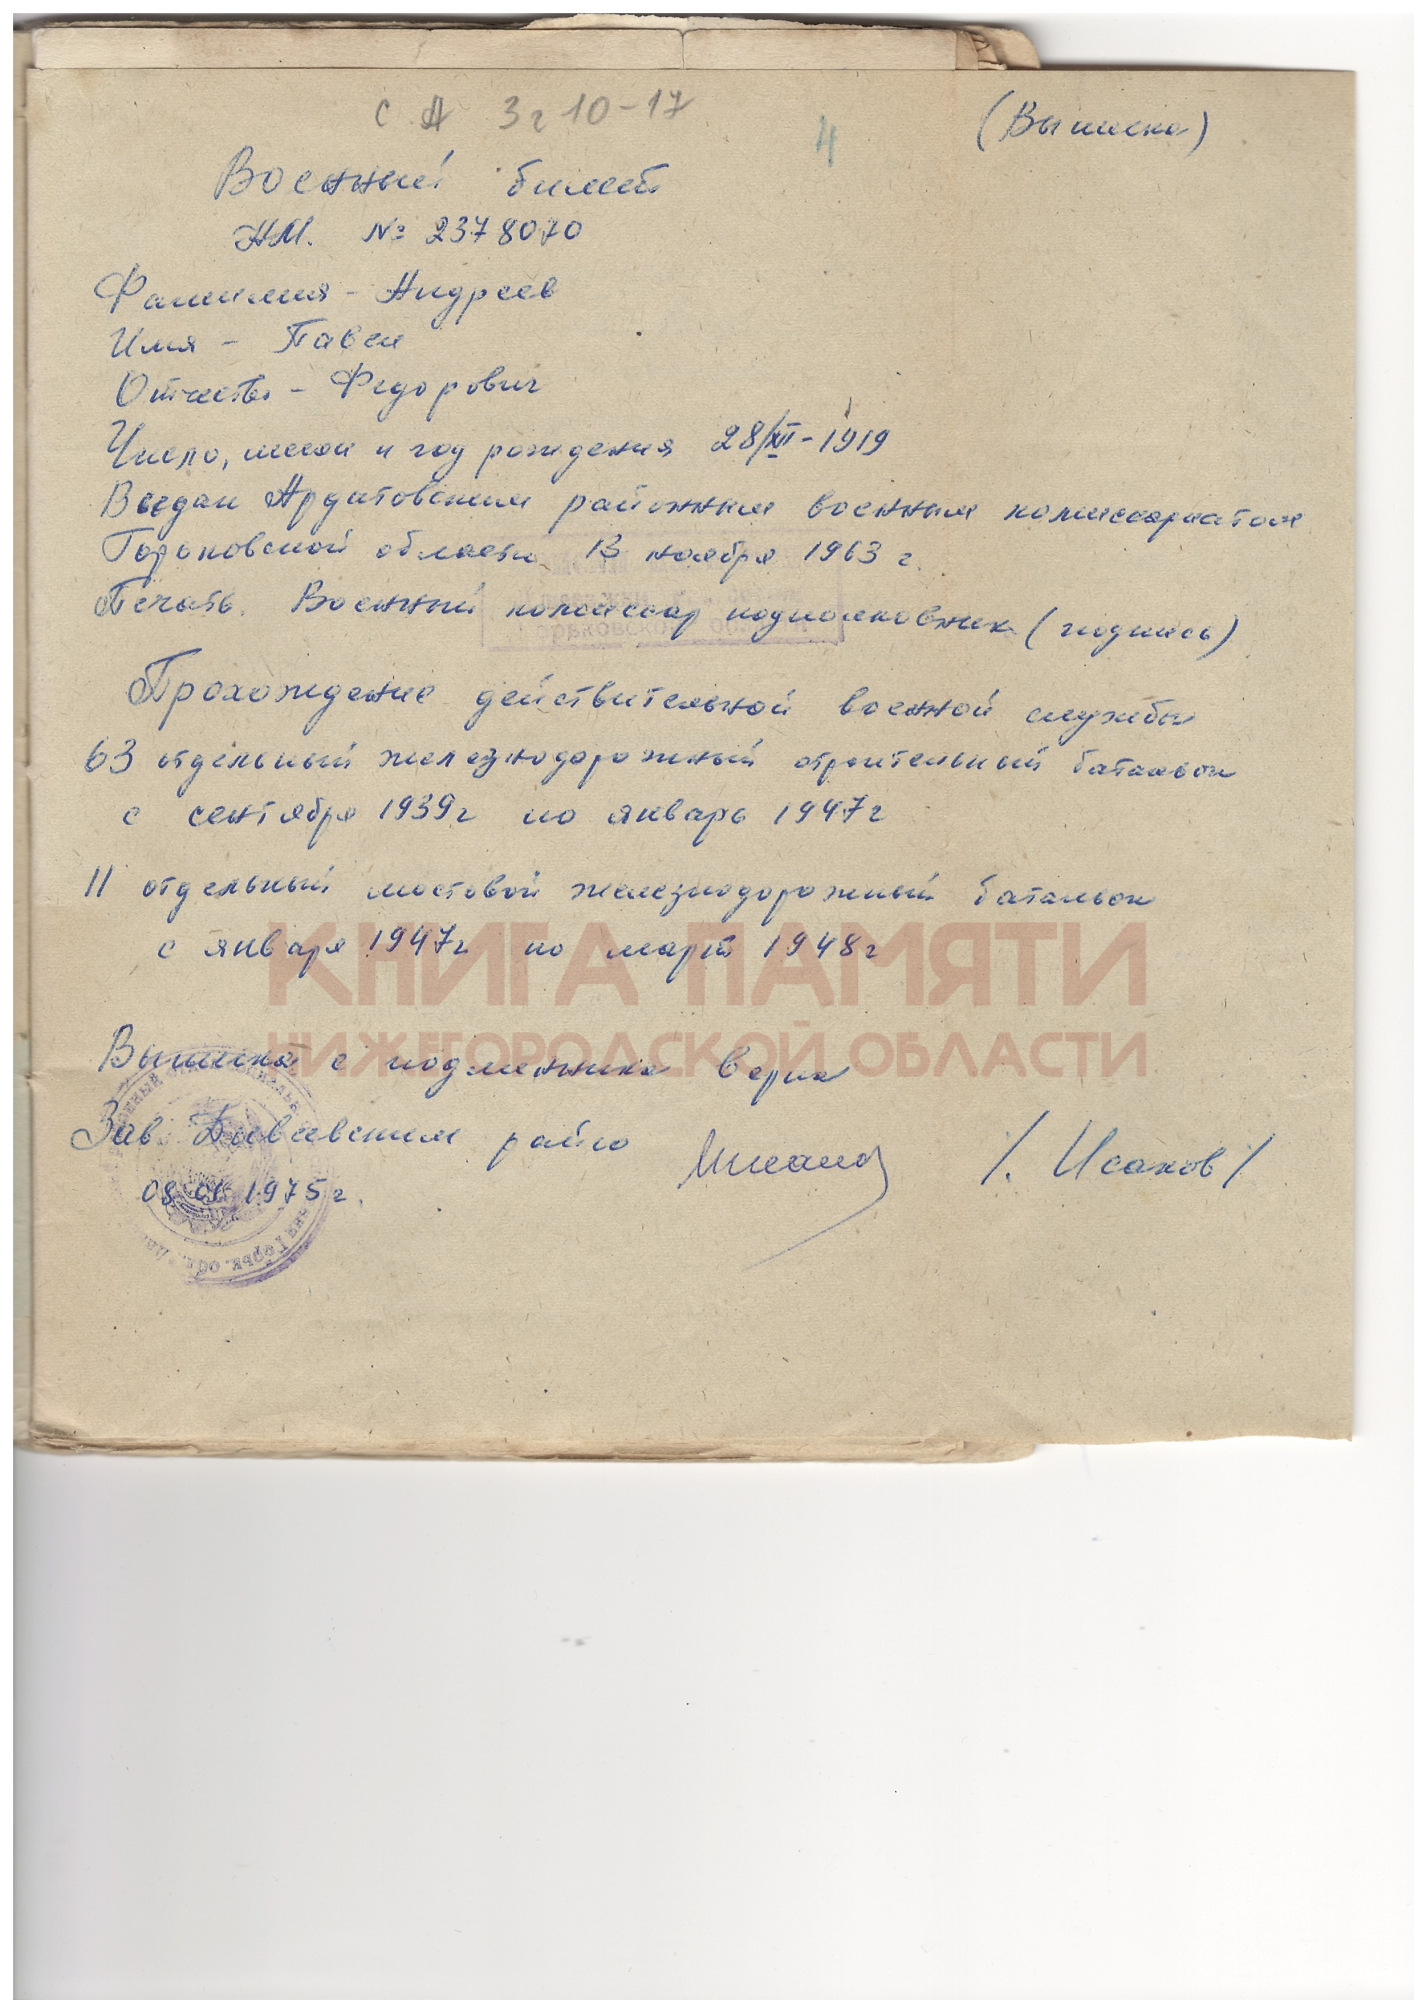 С А 3 г 10-17
4
(Выписка)
Военный билет
НМ. № 2378070
Фамилия - Андреев
Имя - Павел
Отчество - Федорович
Число, месяц и год рождения 28/XII-1919
Выдан Ардатовским районным военным комиссариатом
Горьковской области 13 ноября 1963 г.
Печать. Военный комиссар подполковник (подпись)
Прохождение действительной военной службы
63 отдельный железнодорожный строительный батальон
с сентября 1939г по январь 1947г
11 отдельный мостовой железнодорожный батальон
с января 1947г по март 1948г
КНИГА ПАМЯТИ
НИЖЕГОРОДСКОЙ ОБЛАСТИ
Выписка с подлинника верна
Зав Дивеевским райо /. Исаков/
08 01 1975 г.